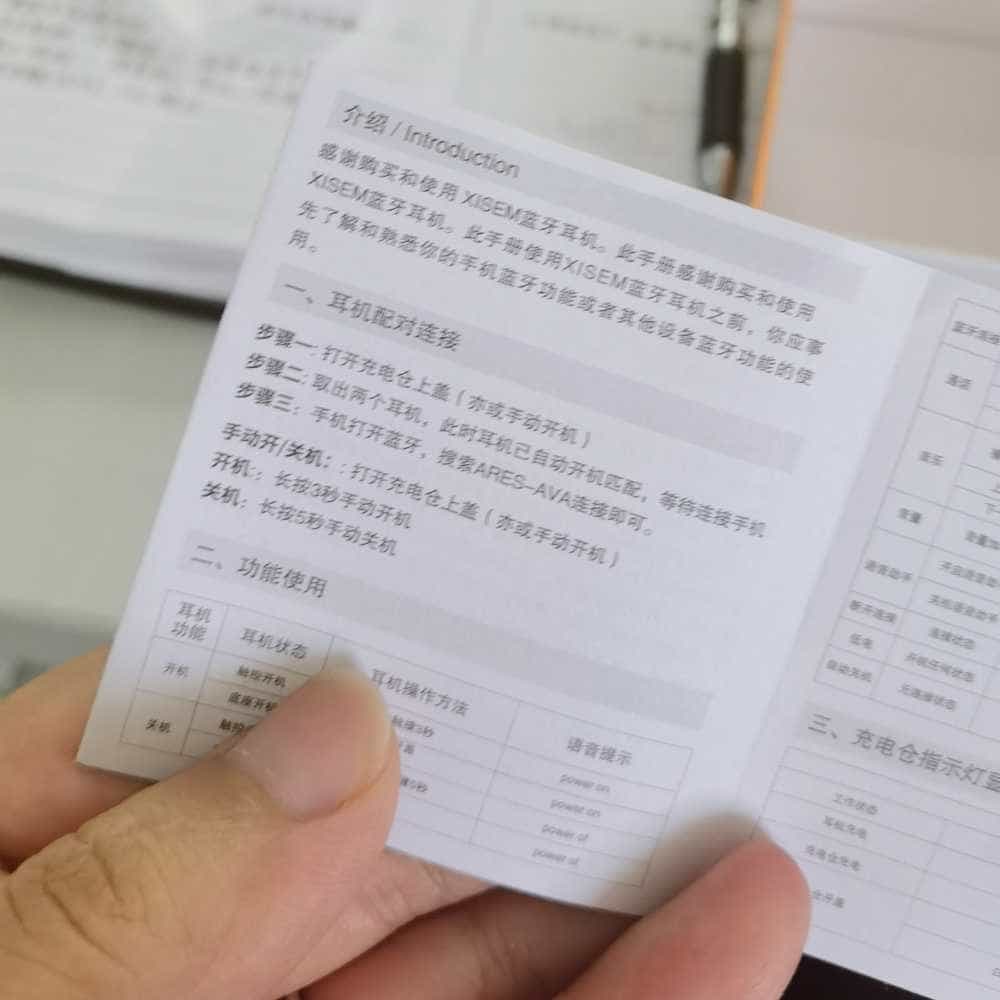 介绍 / Introduction
感谢购买和使用 XISEM蓝牙耳机。此手册感谢购买和使用
XISEM蓝牙耳机。此手册使用XISEM蓝牙耳机之前，你应事
先了解和熟悉你的手机蓝牙功能或者其他设备蓝牙功能的使
用。
一、耳机配对连接
步骤一: 打开充电仓上盖（亦或手动开机）
步骤二: 取出两个耳机，此时耳机已自动开机匹配，等待连接手机
步骤三：手机打开蓝牙，搜索ARES-AVA连接即可。
手动开/关机：: 打开充电仓上盖（亦或手动开机）
开机:：长按3秒手动开机
关机：长按5秒手动关机
二、功能使用
耳机功能 耳机状态 耳机操作方法 语音提示
开机 触控开机 power on
底座开机 power on
关机 power of
power of
通话
音量
语音助手
断开连接 连接状态
低电 开机任何状态
自动关机 无连接状态
三、充电仓指示灯
工作状态
耳机充电
充电仓充电